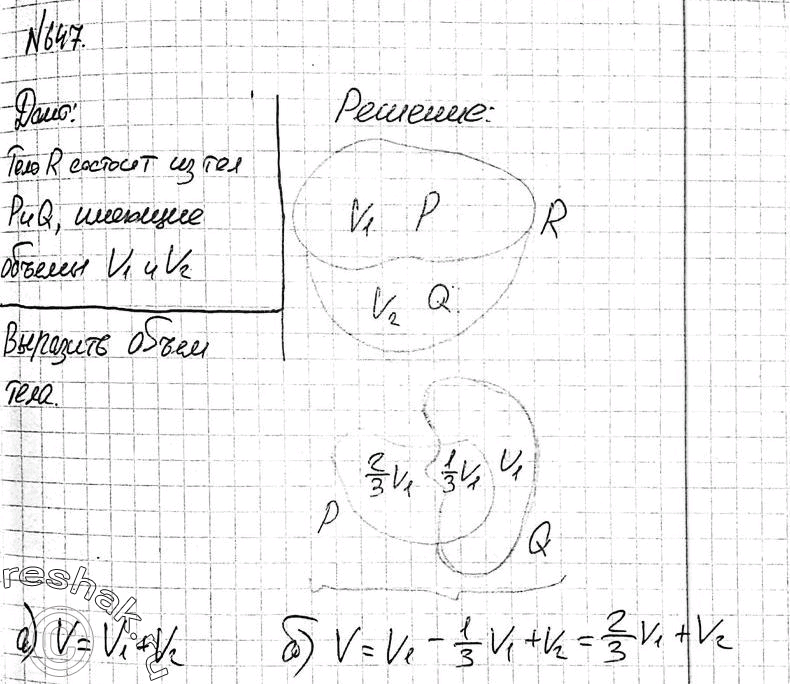 N647.
Дано:
Тело R состоит из тел
P и Q, имеющие
объемы V₁ и V₂
Выразить объем
тела.
Решение:
V₁ P R
V₂ Q
2/3 V₁ 1/3 V₁ V₁
P Q
reshak.ru
а) V = V₁ + V₂
б) V = V₁ - 1/3 V₁ + V₂ = 2/3 V₁ + V₂